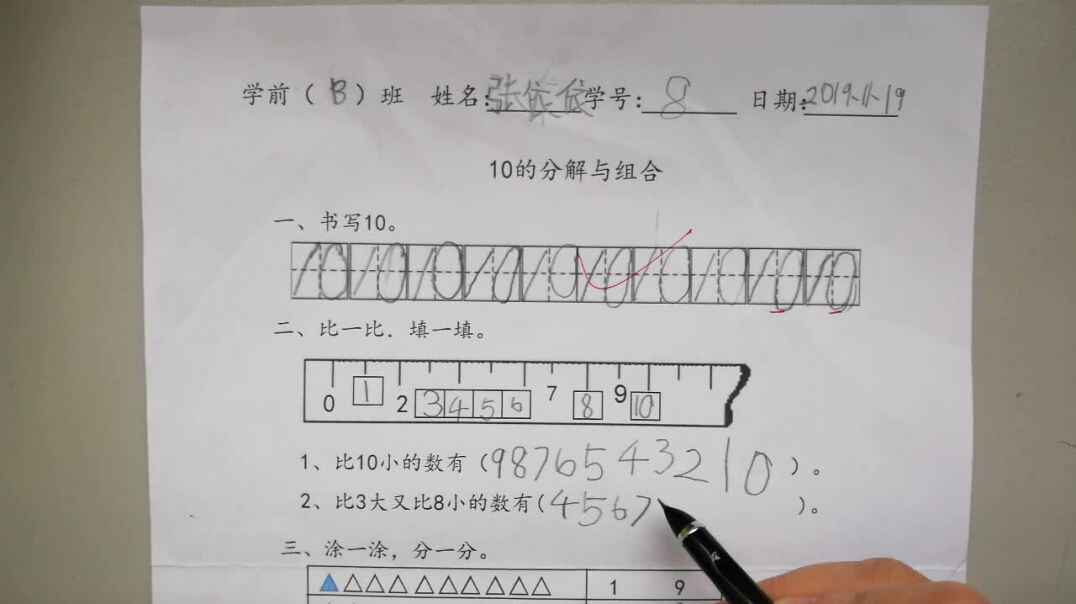 学前（B）班 姓名：张依依 学号：8 日期：2019.11.19
10的分解与组合
一、书写10。
10 10 10 10 10 10 10 10 10 10
二、比一比．填一填。
0 1 2 3 4 5 6 7 8 9 10
1、比10小的数有（9876543210）。
2、比3大又比8小的数有(4567)。
三、涂一涂，分一分。
1 9